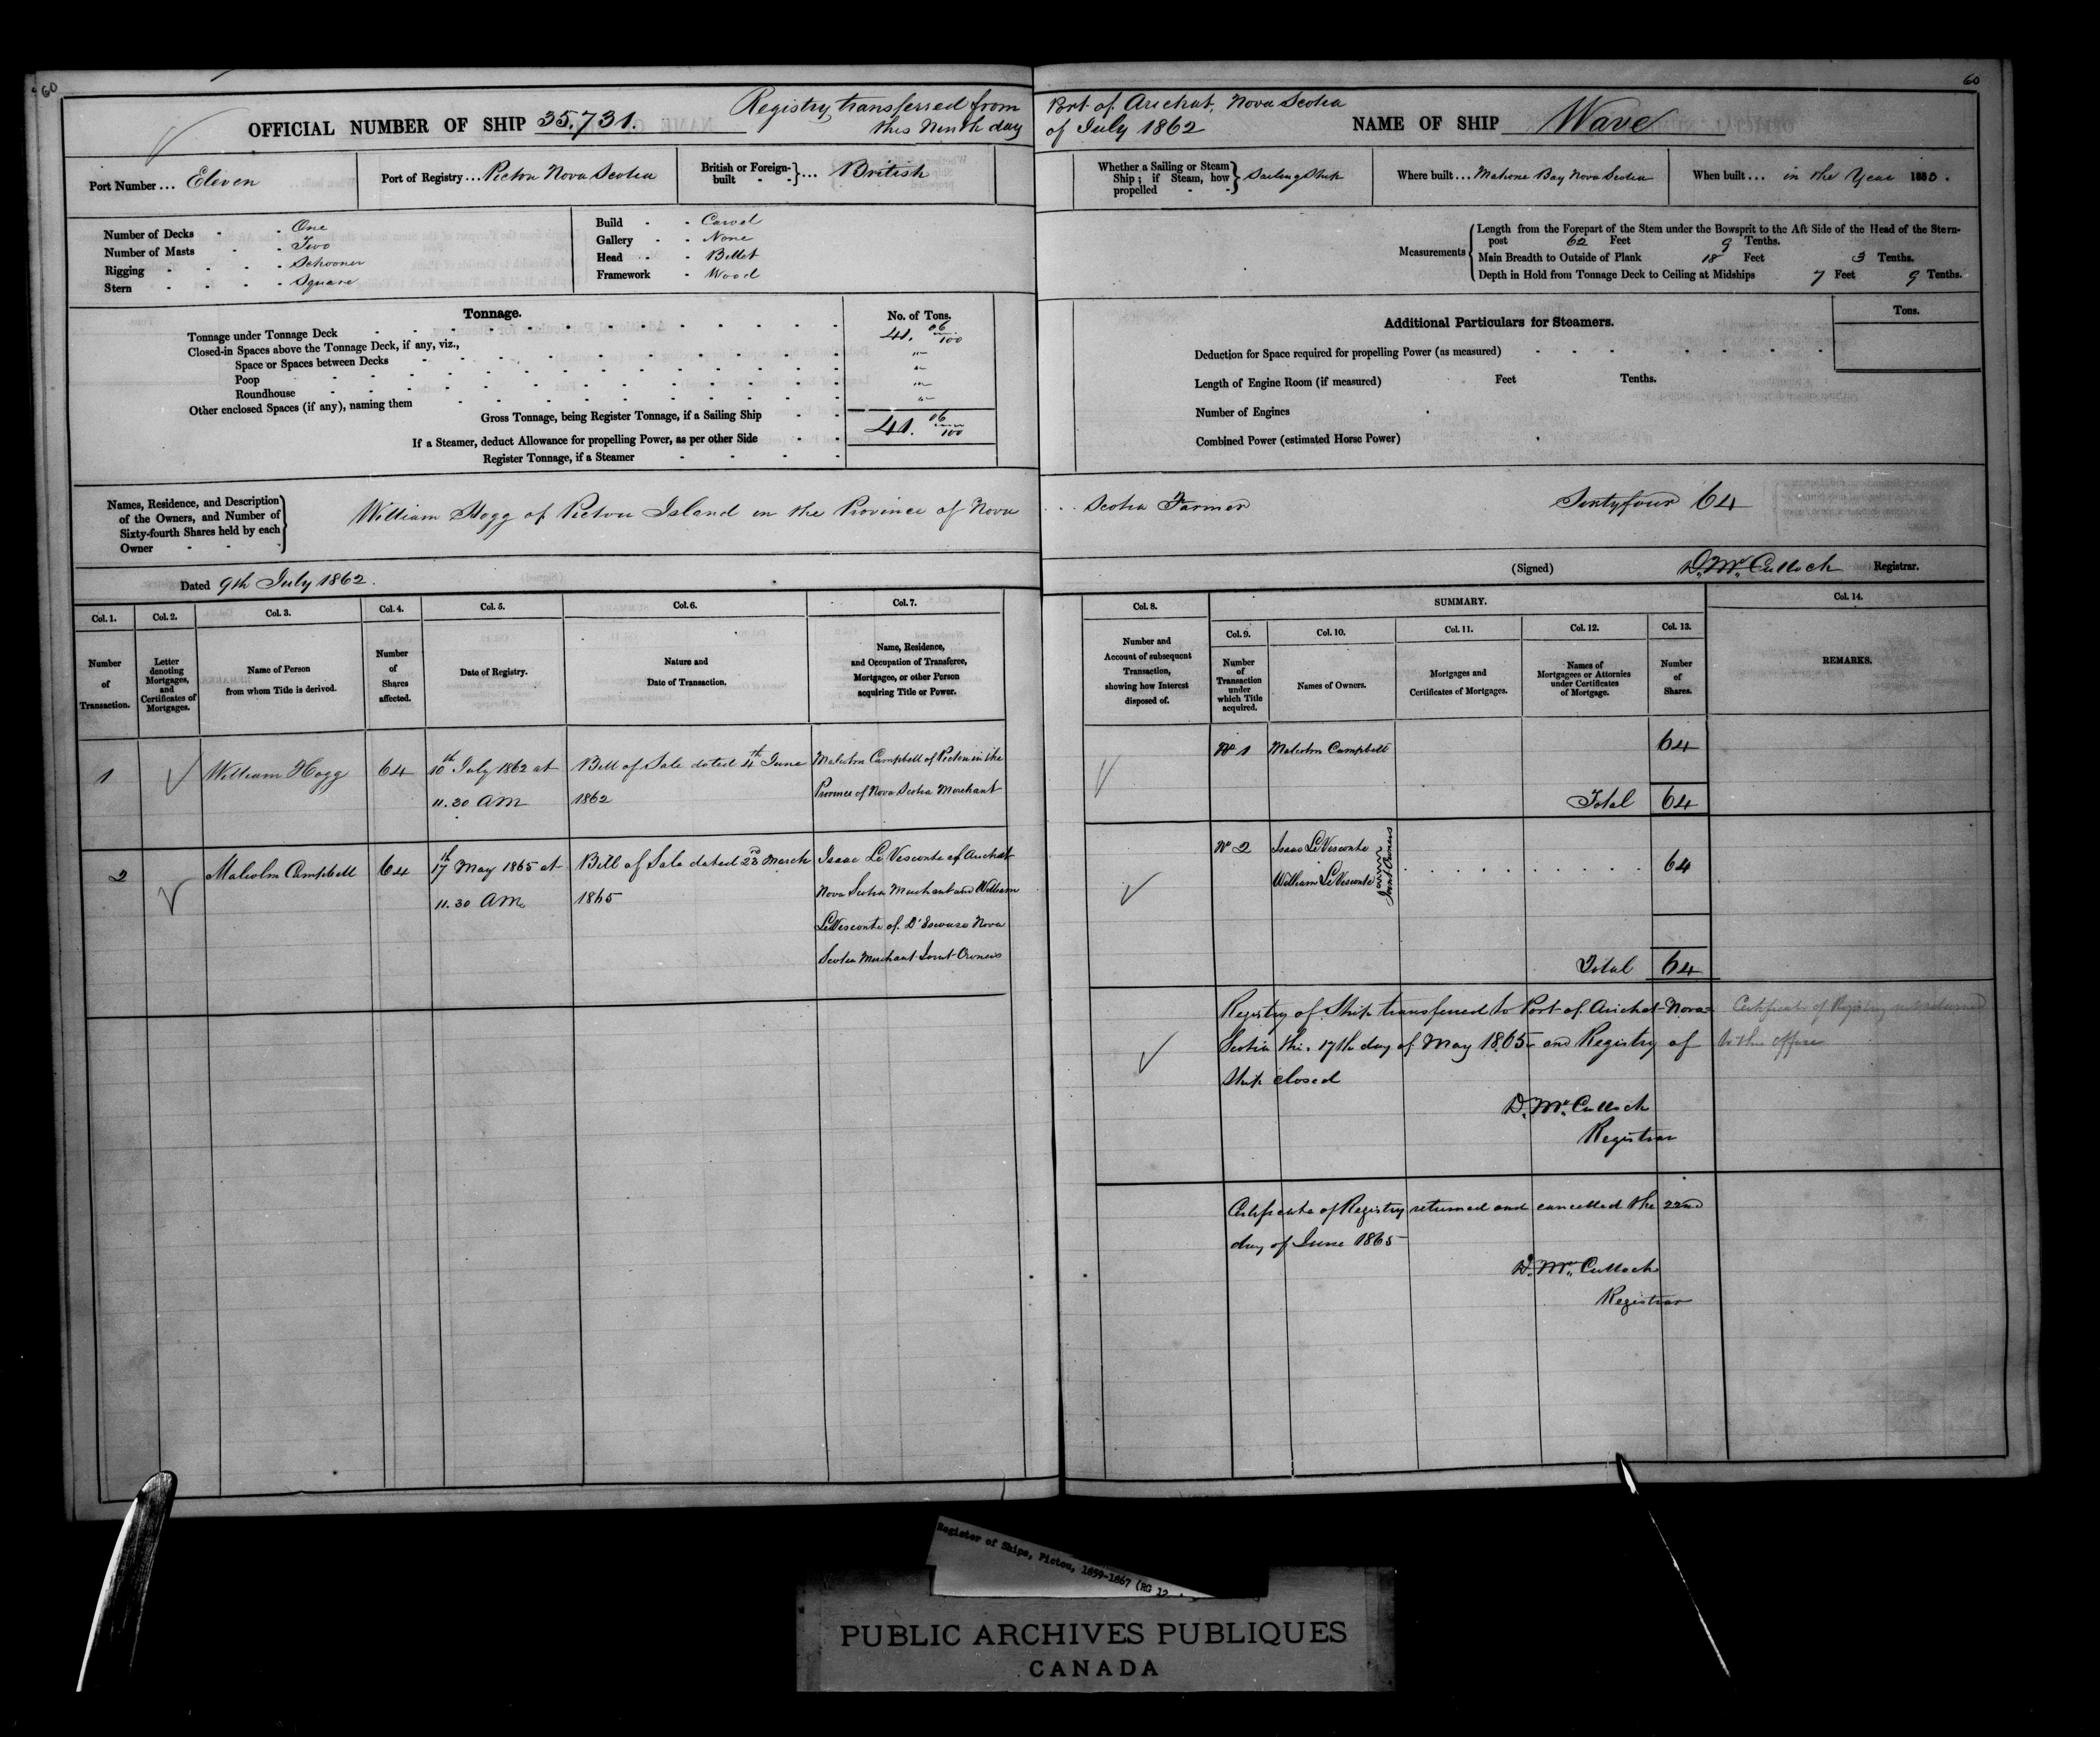 60
OFFICIAL NUMBER OF SHIP 35.731.
Registry transferred from
this Ninth day
Port Number ... Eleven
Port of Registry ... Pictou Nova Scotia
British or Foreign-built - - } ... British
Number of Decks - - One
Number of Masts - - Two
Rigging - - - - Schooner
Stern - - - - Square
Build - - Carvel
Gallery - - None
Head - - Billet
Framework - Wood
Tonnage.
No. of Tons.
Tonnage under Tonnage Deck 41. 06/100
Closed-in Spaces above the Tonnage Deck, if any, viz.,
Space or Spaces between Decks "
Poop "
Roundhouse "
Other enclosed Spaces (if any), naming them "
Gross Tonnage, being Register Tonnage, if a Sailing Ship 41. 06/100
If a Steamer, deduct Allowance for propelling Power, as per other Side
Register Tonnage, if a Steamer
Names, Residence, and Description
of the Owners, and Number of
Sixty-fourth Shares held by each
Owner
William Hogg of Pictou Island in the Province of Nova
Dated 9th July 1862.
Col. 1. Col. 2. Col. 3. Col. 4. Col. 5. Col. 6. Col. 7.
Number of Transaction.
Letter denoting Mortgages, and Certificates of Mortgages.
Name of Person from whom Title is derived.
Number of Shares affected.
Date of Registry.
Nature and Date of Transaction.
Name, Residence, and Occupation of Transferee, Mortgagee, or other Person acquiring Title or Power.
1 William Hogg 64 10th July 1862 at Bill of Sale dated 4th June Malcolm Campbell of Pictou in the
11.30 AM 1862 Province of Nova Scotia Merchant
2 Malcolm Campbell 64 17th May 1865 at Bill of Sale dated 23rd March Isaac LeVesconte of Arichat
11.30 AM. 1865 Nova Scotia Merchant and William
LeVesconte of D'Escouse Nova
Scotia Merchant Joint Owners
60
Port of Arichat, Nova Scotia
of July 1862
NAME OF SHIP Wave
Whether a Sailing or Steam
Ship; if Steam, how
propelled - -
Sailing Ship
Where built ... Mahone Bay Nova Scotia
When built ... in the Year
Measurements
Length from the Forepart of the Stem under the Bowsprit to the Aft Side of the Head of the Stern-
post 62 Feet 9 Tenths.
Main Breadth to Outside of Plank 18 Feet 3 Tenths.
Depth in Hold from Tonnage Deck to Ceiling at Midships 7 Feet 9 Tenths.
Additional Particulars for Steamers.
Tons.
Deduction for Space required for propelling Power (as measured)
Length of Engine Room (if measured) Feet Tenths.
Number of Engines
Combined Power (estimated Horse Power)
Scotia Farmer Sixtyfour 64
(Signed) D. McCulloch Registrar.
Col. 8. SUMMARY. Col. 14.
Col. 9. Col. 10. Col. 11. Col. 12. Col. 13.
Number and Account of subsequent Transaction, showing how Interest disposed of.
Number of Transaction under which Title acquired.
Names of Owners.
Mortgages and Certificates of Mortgages.
Names of Mortgagees or Attornies under Certificates of Mortgage.
Number of Shares.
REMARKS.
No 1 Malcolm Campbell 64
Total 64
No 2 Isaac LeVesconte
William LeVesconte
Joint Owners
64
Total 64
Registry of Ship transferred to Port of Arichat Nova
Scotia this 17th day of May 1865 and Registry of
Ship closed
D. McCulloch
Registrar
Certificate of Registry not returned
to this office
Certificate of Registry returned and cancelled the 22nd
day of June 1865
D. McCulloch
Registrar
Register of Ships, Pictou, 1859-1867 (RG 12
PUBLIC ARCHIVES PUBLIQUES
CANADA